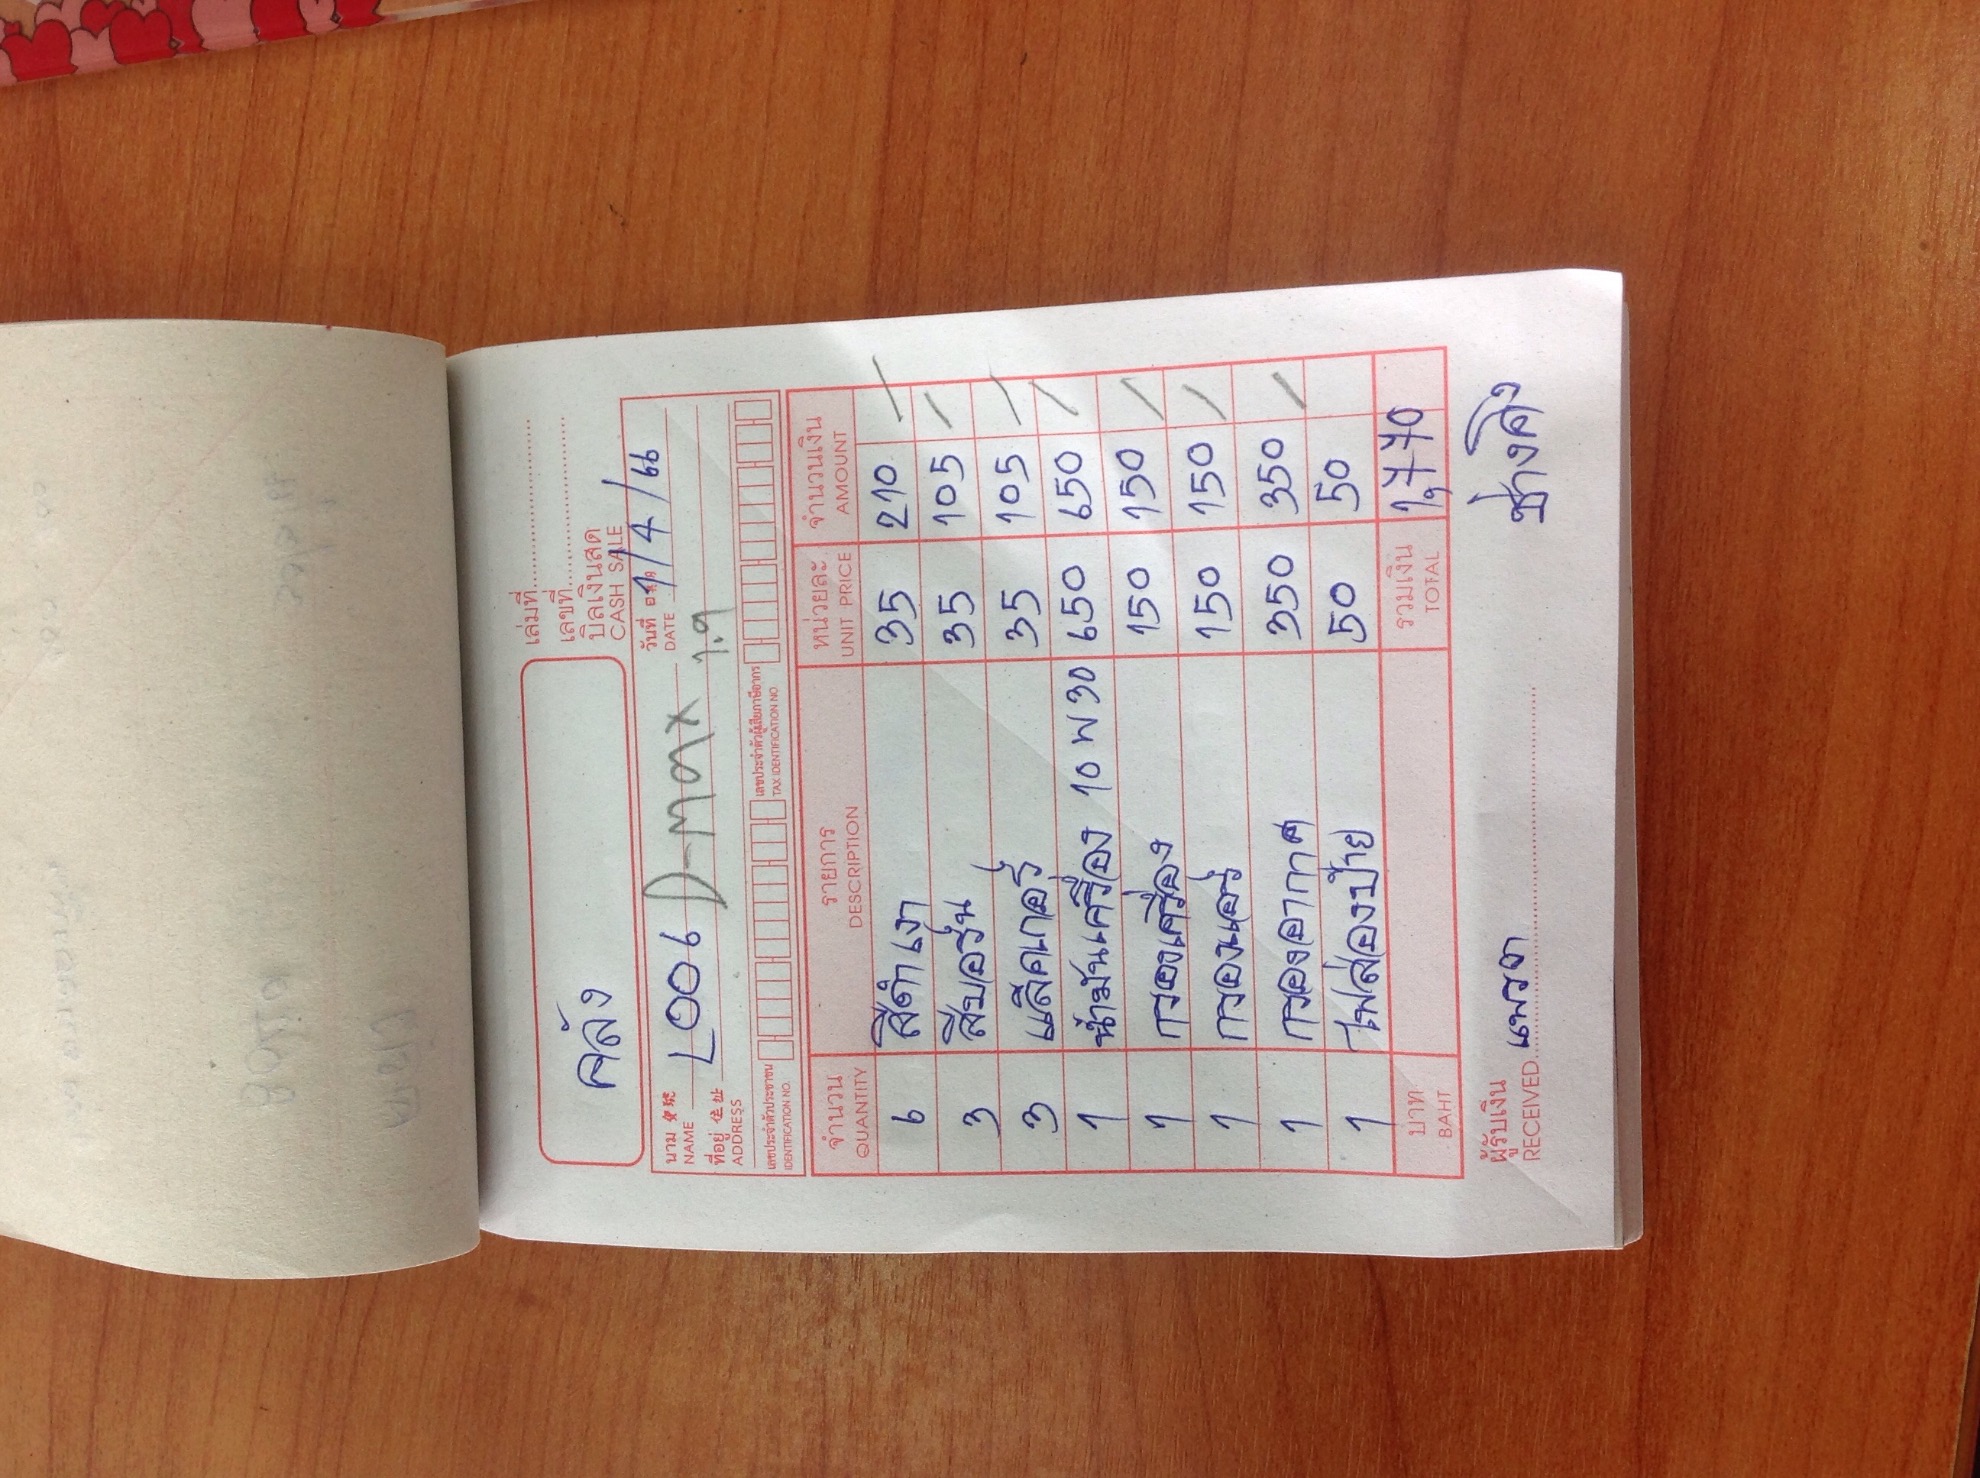 เล่มที่
เลขที่
คลัง
บิลเงินสด
CASH SALE
วันที่ 1/4/66
DATE
นาม L006 D-max
NAME
ที่อยู่ 住址 1.9
ADDRESS
เลขประจำตัวประชาชน เลขประจำตัวผู้เสียภาษีอากร
IDENTIFICATION NO. TAX IDENTIFICATION NO.
จำนวน รายการ หน่วยละ จำนวนเงิน
QUANTITY DESCRIPTION UNIT PRICE AMOUNT
6 สีดำเงา 35 210
3 สีบอร์น 35 105
3 แล็คเกอร์ 35 105
1 น้ำมันเครื่อง 10 W 30 650 650
1 กรองเครื่อง 150 150
1 กรองแอร์ 150 150
1 กรองอากาศ 350 350
1 ไฟส่องป้าย 50 50
บาท รวมเงิน 1,770
BAHT TOTAL
ผู้รับเงิน แพรวา
RECEIVED